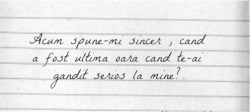 Acum spune-mi sincer, cand
a fost ultima oara cand te-ai
gandit serios la mine?.